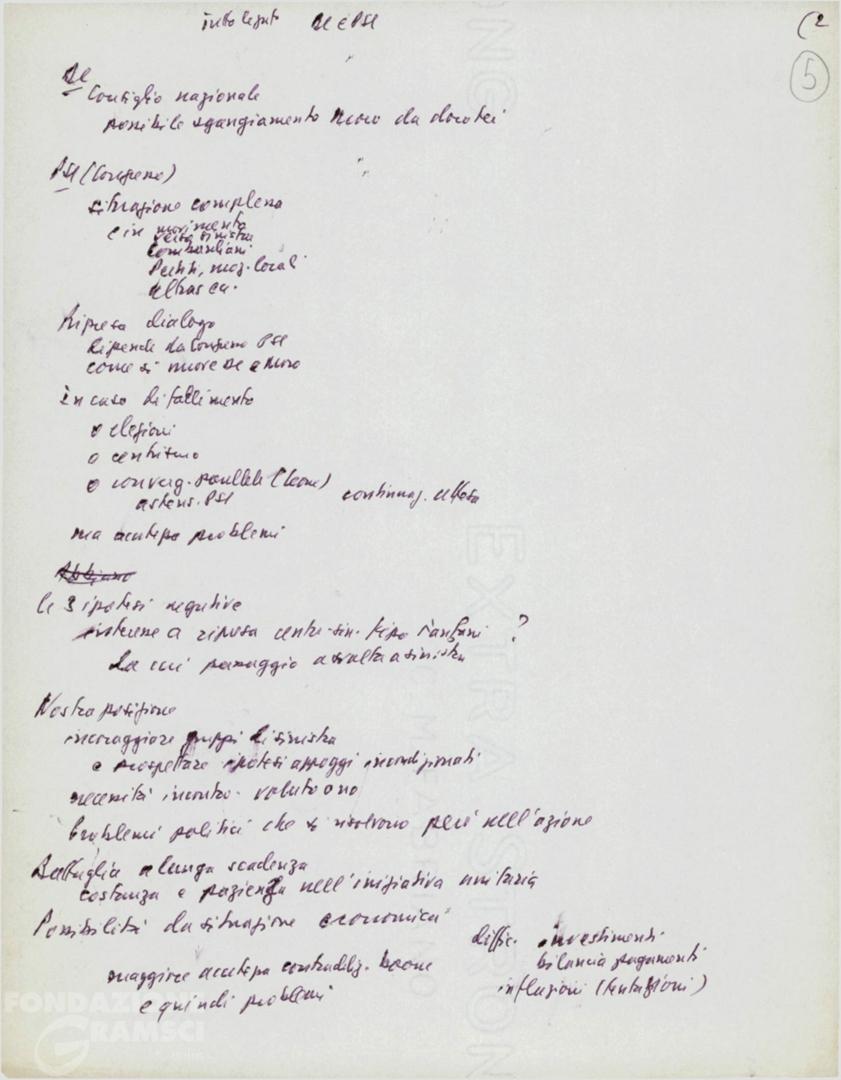 DC e PSI
(2
5
DC
Consiglio nazionale
possibile sganciamento Moro da dorotei
PSI (Congresso)
situazione complessa
e in movimento
verso sinistra
Lombardiani
Pertini, moz. locali
Ripresa dialogo
dipende da Congresso PSI
come si muove DC e Moro
In caso di fallimento
o elezioni
o centrismo
o converg. parallele (Leone)
astens. PSI
continuaz. attesa
ma acutezza problemi
Abbiamo
le 3 ipotesi negative
insieme a ripresa centro-sin. tipo Fanfani ?
da cui passaggio a svolta a sinistra
Nostra posizione
incoraggiare gruppi di sinistra
e prospettare ipotesi appoggi incondizionati
necessità incontro
Problemi politici che si risolvono però nell'azione
Battaglia a lunga scadenza
costanza e pazienza nell'iniziativa unitaria
Possibilità da situazione economica
diffic. investimenti
bilancia pagamenti
inflazioni (tentazioni)
maggiore acutezza contraddiz. boom
e quindi problemi
FONDAZIONE
GRAMSCI
EXTRA STRONG